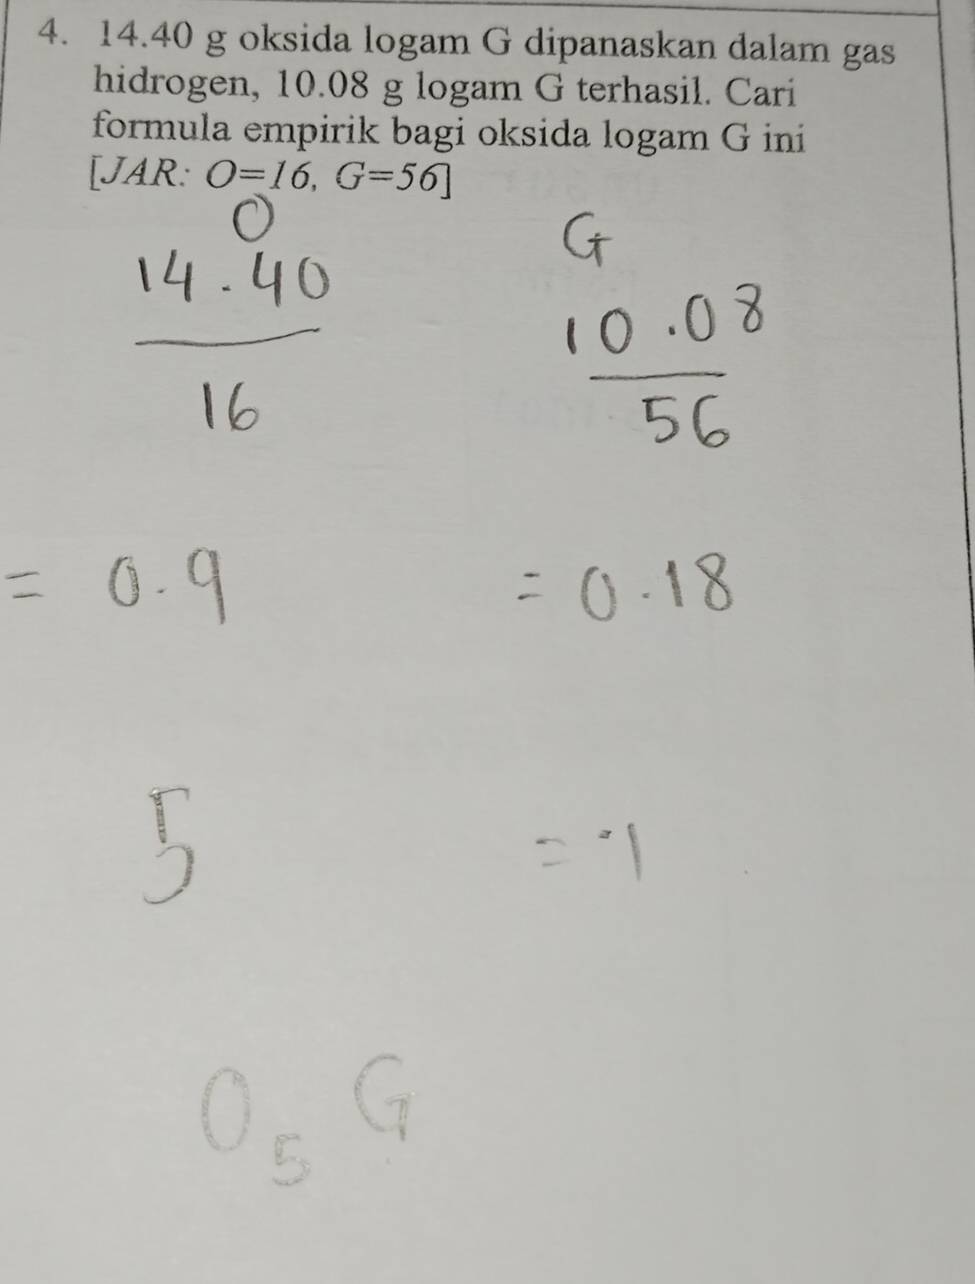 4. 14.40 g oksida logam G dipanaskan dalam gas
hidrogen, 10.08 g logam G terhasil. Cari
formula empirik bagi oksida logam G ini
[JAR: O=16, G=56]
O G
14.40 10.08
16 56
= 0.9 = 0.18
5 = 1
O5 G